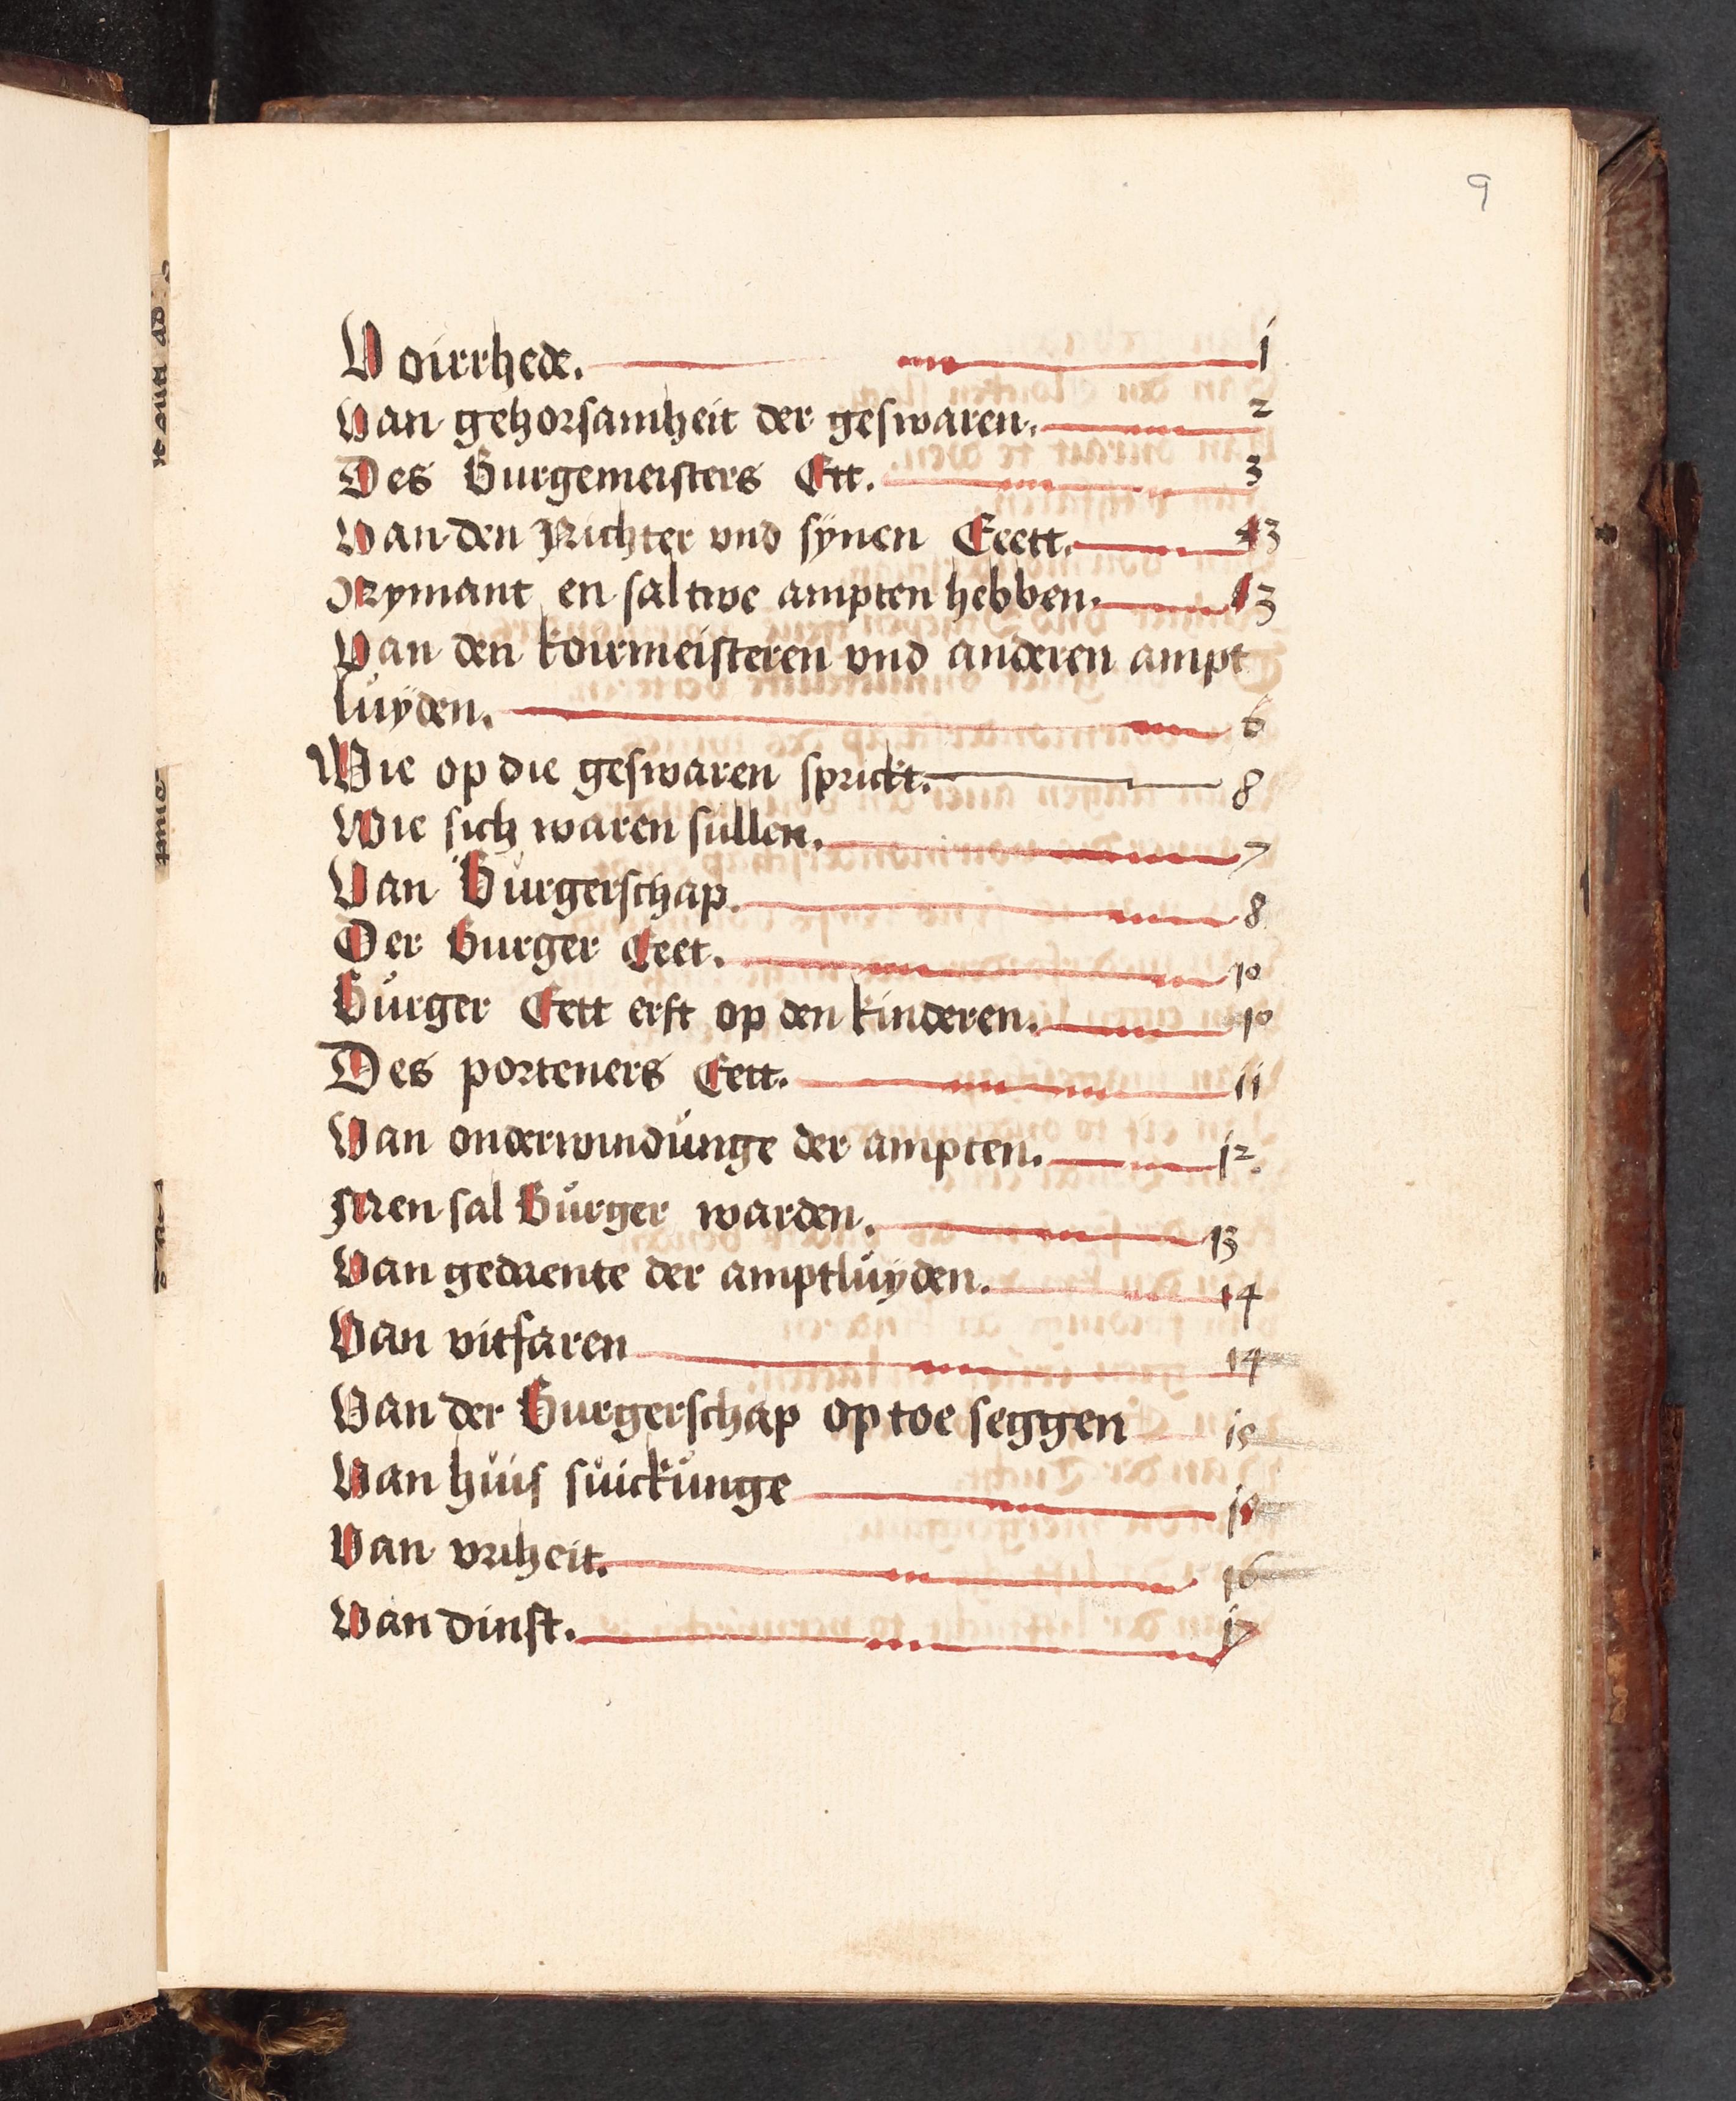 9
Voirrhede. 1
Van gehorsamheit der geswaren. 2
Des Burgemeisters Ett. 3
Van den Richter vnd synen Eeett. 3
Nymant en sal twe ampten hebben. 3
Van den koirmeisteren vnd anderen ampt
luyden. 6
Wie op die geswaren sprickt. 8
Wie sich waren sullen. 7
Van Burgerschap. 8
Der Burger Eeet. 10
Burger Eett erft op den kinderen. 10
Des porteners Eett. 11
Van onderwindunge der ampten. 12.
Men sal Burger warden. 13
Van gedaente der amptluyden. 14
Van vitfaren 14
Van der Burgerschap op toe seggen 15
Van huis suickunge
Van vriheit. 16
Van dinst. 17